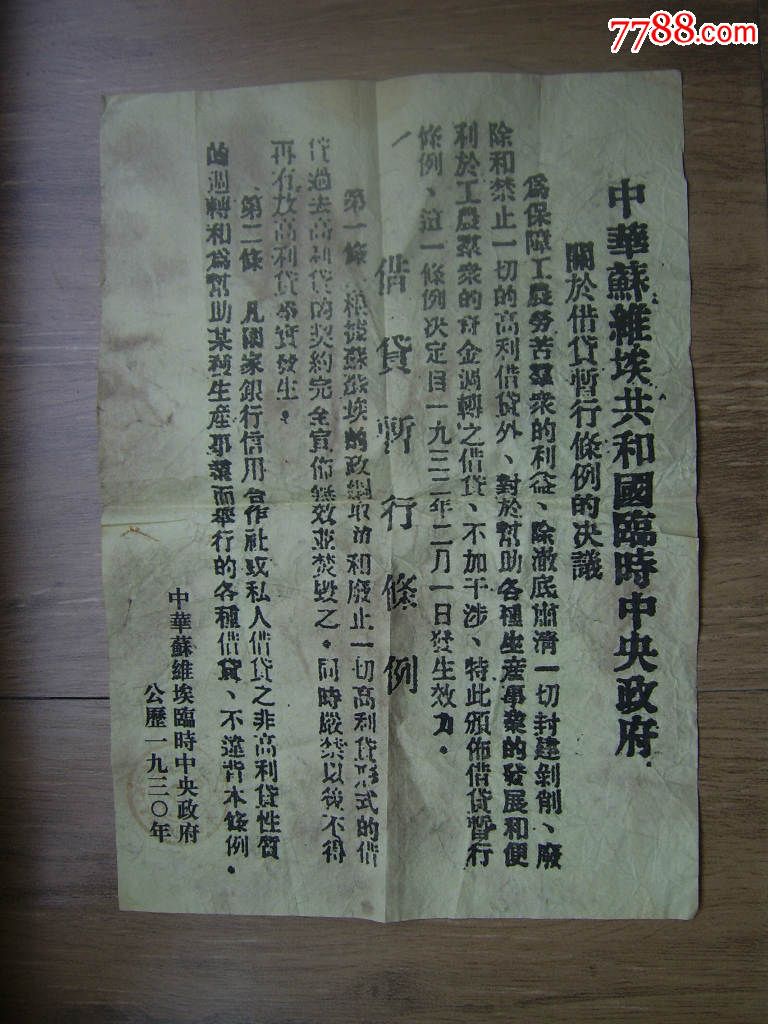 7788.com
中華蘇維埃共和國臨時中央政府
關於借貸暫行條例的決議
為保障工農勞苦羣衆的利益、除澈底肅清一切封建剝削、廢
除和禁止一切的高利借貸外、對於幫助各種生產事業的發展和便
利於工農羣衆的資金週轉之借貸、不加干涉、特此頒佈借貸暫行
條例、這一條例決定自一九三二年二月一日發生效力。
借貸暫行條例
第一條 根據蘇維埃的政綱取消和廢止一切高利貸形式的借
貸過去高利貸的契約完全宣佈無效並焚毀之。同時嚴禁以後不得
再有放高利貸事實發生。
第二條 凡國家銀行信用合作社或私人借貸之非高利貸性質
的週轉和為幫助某種生產事業而舉行的各種借貸、不違背本條例。
中華蘇維埃臨時中央政府
公歷一九三〇年